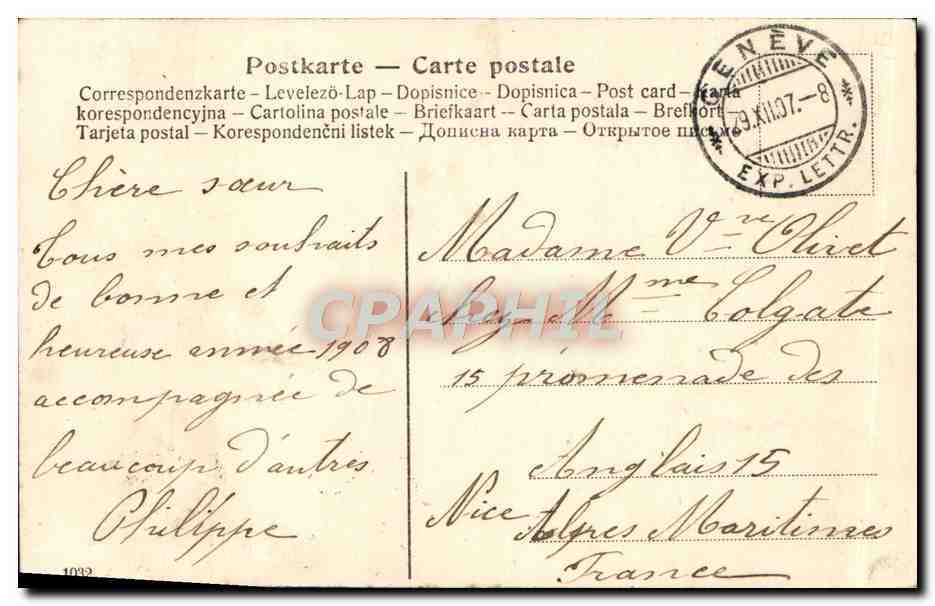 Postkarte — Carte postale
Correspondenzkarte – Levelező-Lap – Dopisnice – Dopisnica – Post card – Karta
korespondencyjna – Cartolina postale – Briefkaart – Carta postala – Brefkort –
Tarjeta postal – Korespondenční listek – Дописна карта – Открытое письмо
GENÈVE
29.XII.07.–8
EXP. LETTR.
Chère sœur
Tous mes souhaits
de bonne et
heureuse année 1908
accompagnée de
beaucoup d'autres
Philippe
1032
Madame Vve Olivet
chez Mme Colgate
15 promenade des
Anglais 15
Nice Alpes Maritimes
France
CPAPHIL